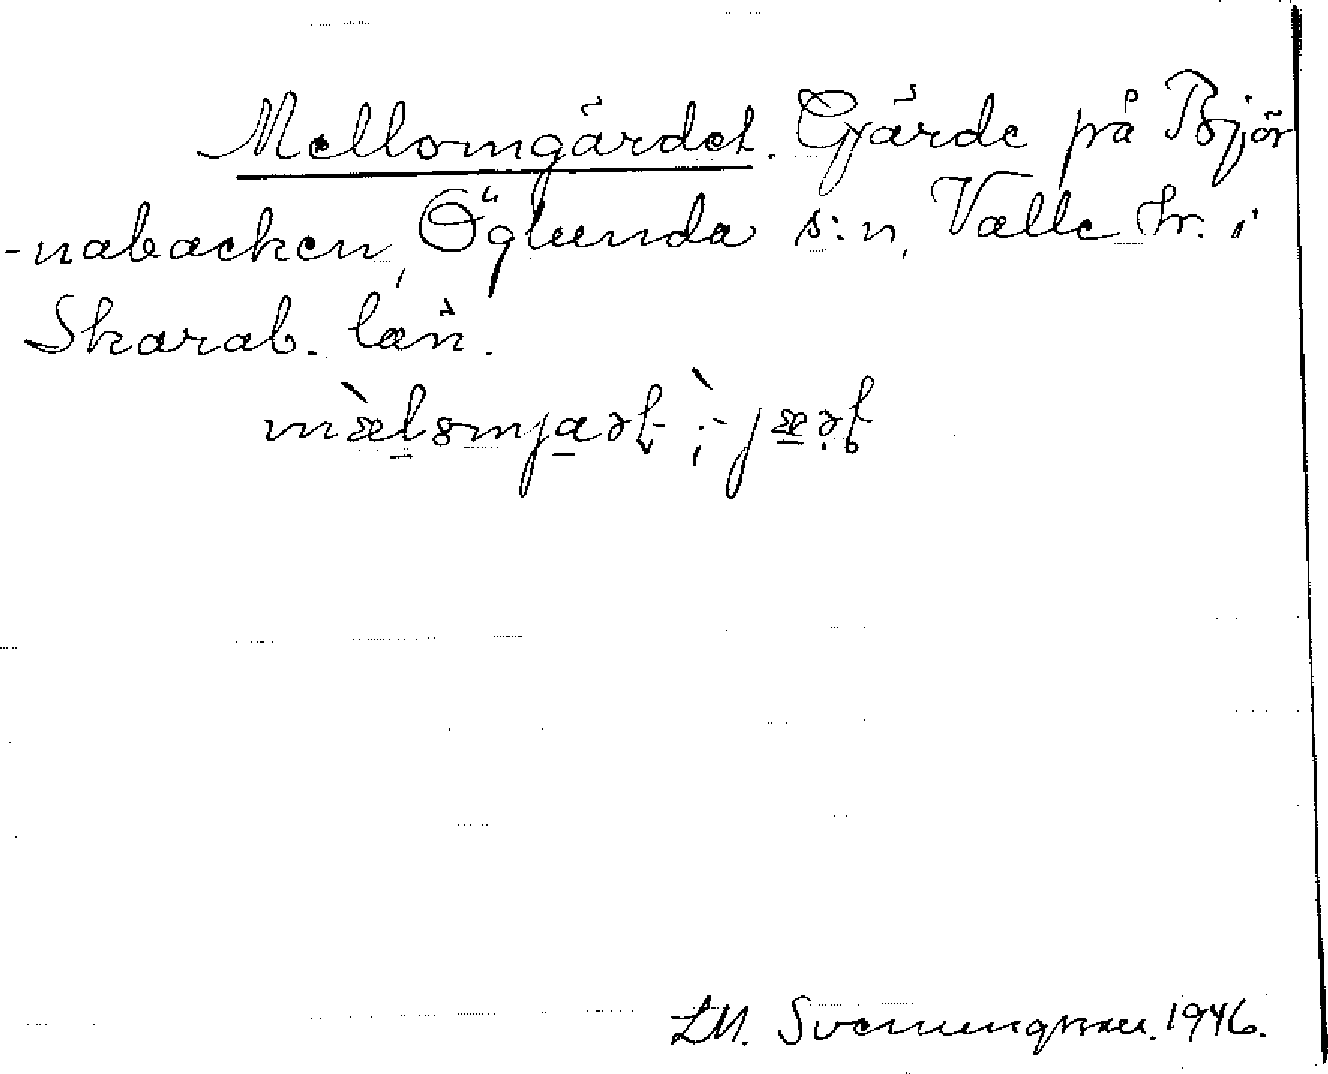 Mellomgärdet. Gärde på Björ
-nabacken, Öglunda s:n, Valle hr. i
Skarab. län.
L.M. Svenungsson. 1946.